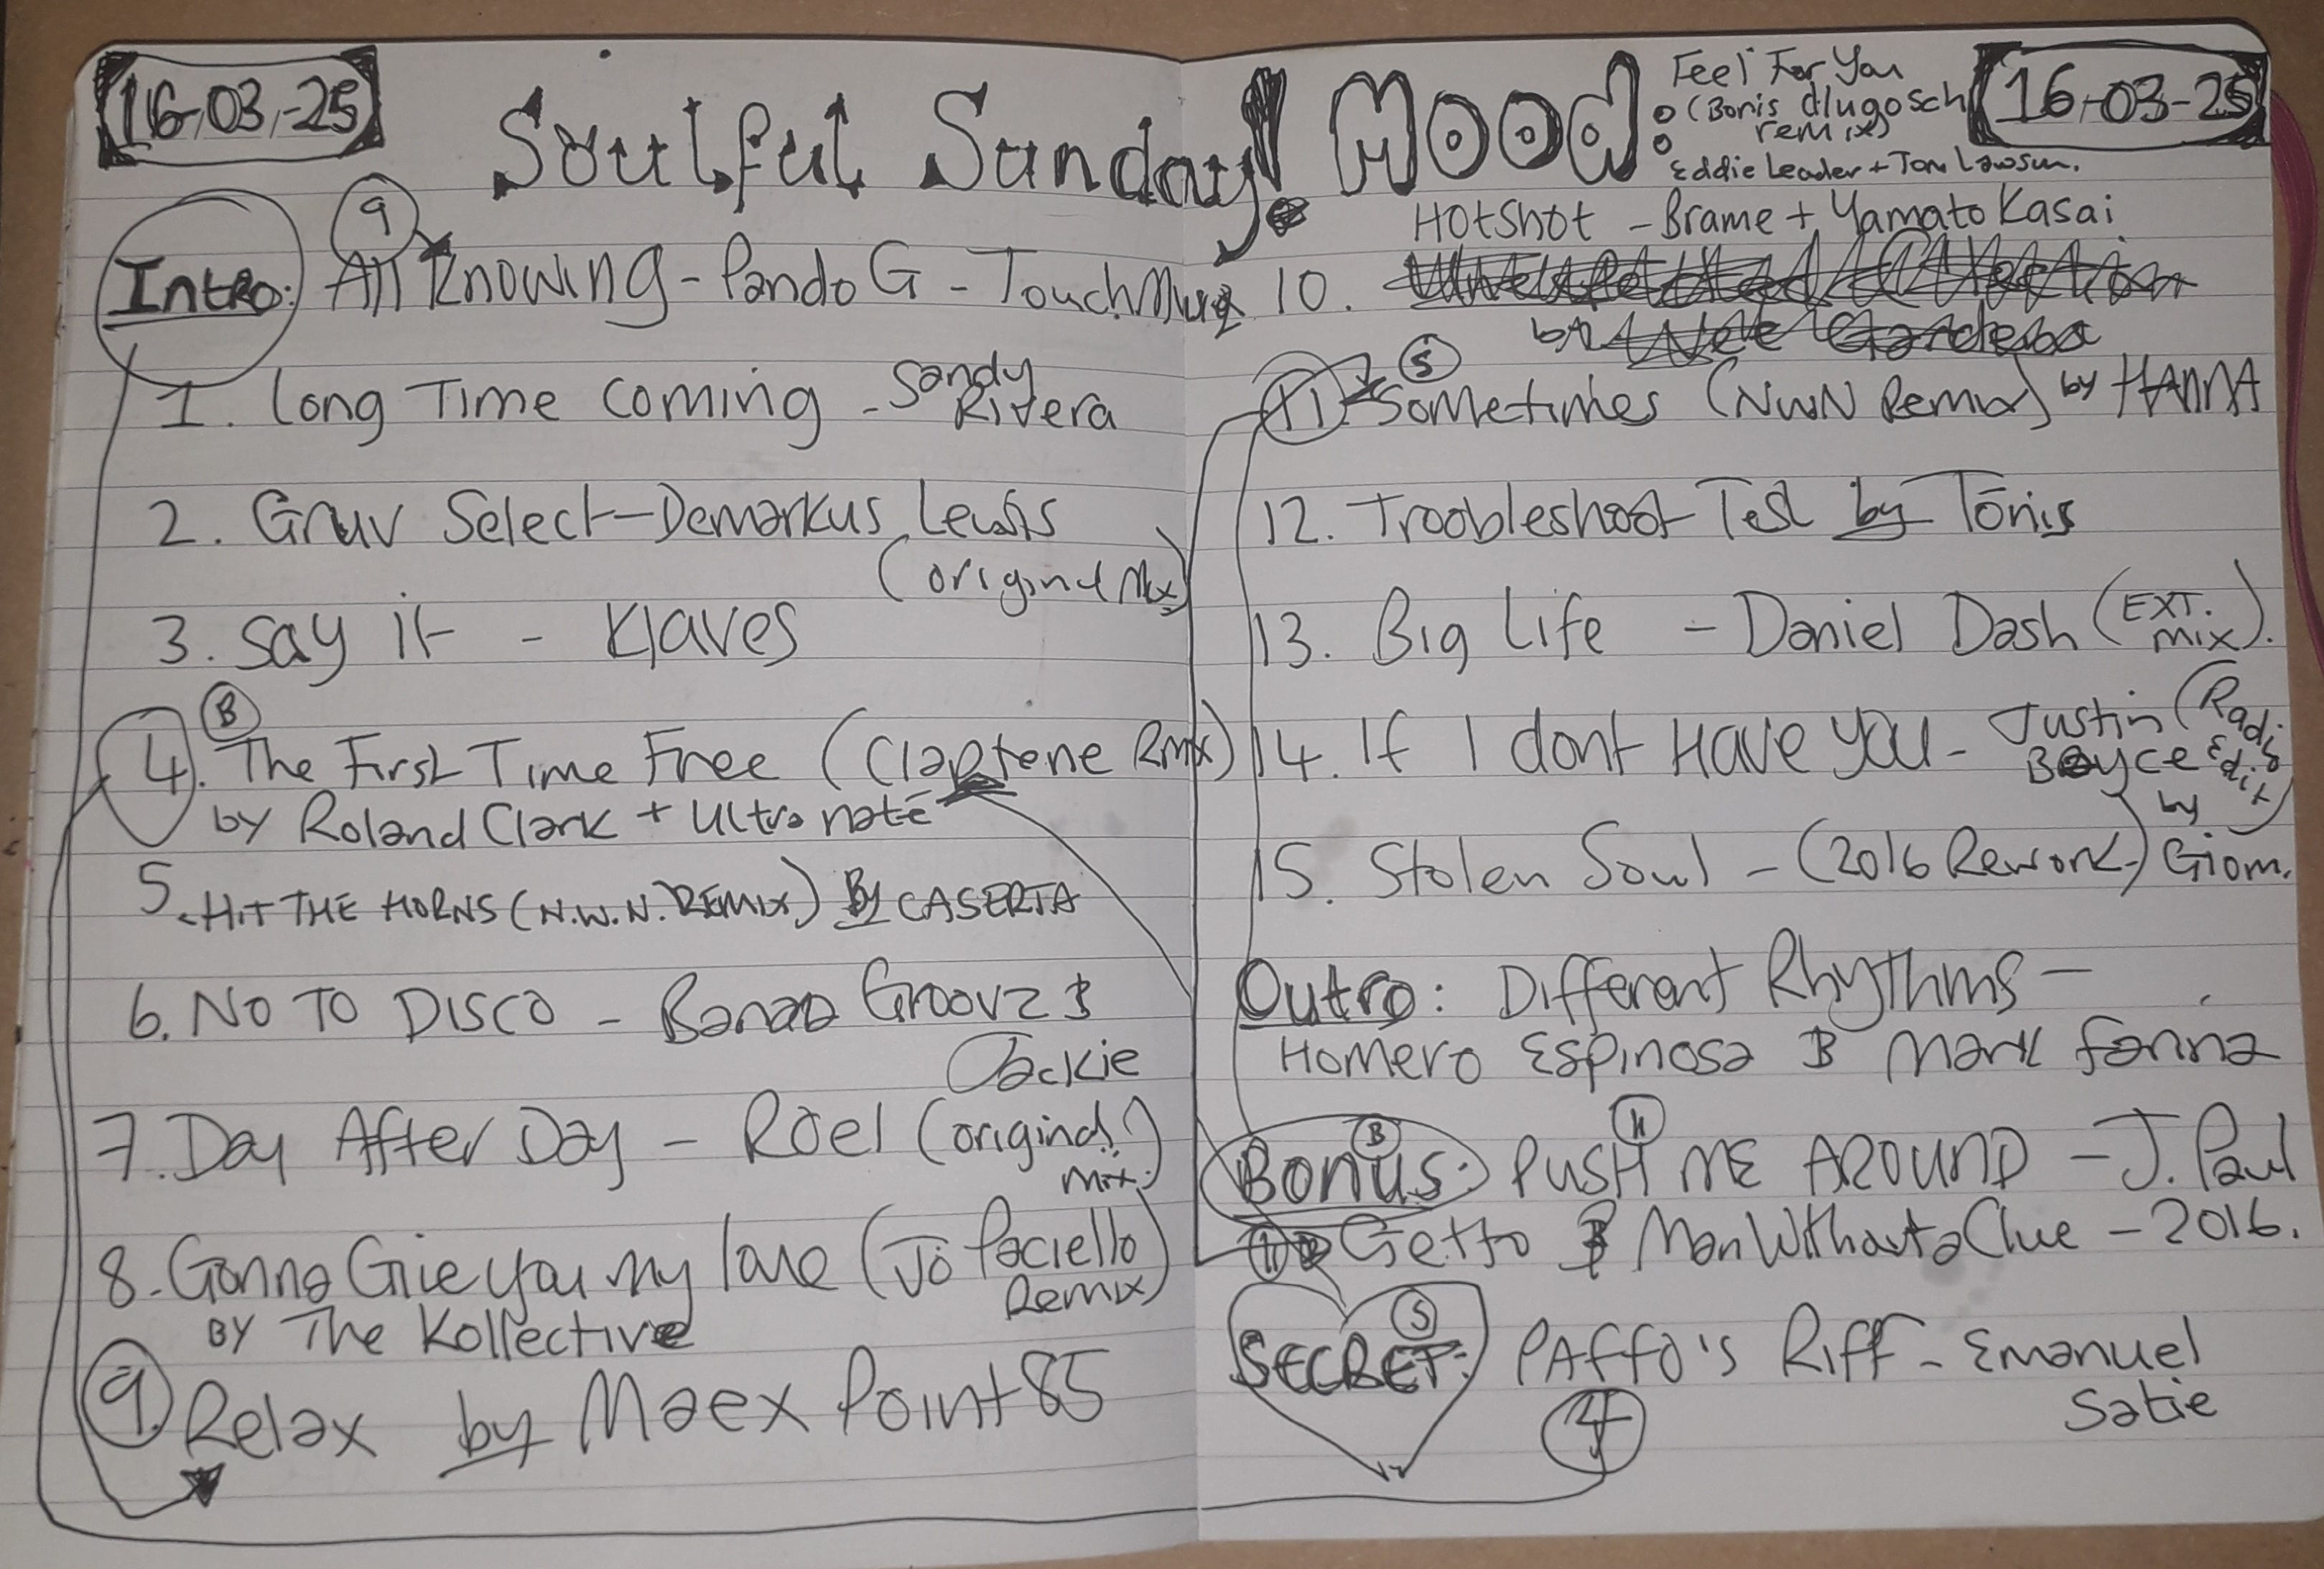 16-03-25
Soulful Sunday!
9
Intro: All Knowing - Pando G - Touch
1. Long Time Coming - Sandy Rivera
2. Gruv Select - Demarkus Lewis
(original Mix)
3. Say it - Klaves
B
4. The First Time Free (Claptone Rmx)
by Roland Clark + Ultra naté
5. HIT THE HORNS (N.W.N. REMIX) By CASERTA
6. NO TO DISCO - Groovz &
Jackie
7. Day After Day - Roel (original
mix.)
8. Gonna Give You my love (Jo Paciello
Remix)
BY The Kollective
9. Relax by Maex Point85
Mood:
Feel For You
(Boris dlugosch
remix)
Eddie Leader + Tom Lawson.
16-03-25
HOTSHOT - Brame + Yamato Kasai
10.
by
S
11. Sometimes (NWN Remix) by HANNA
12. Troobleshoot Test by Tonis
13. Big Life - Daniel Dash (EXT.
mix).
14. If I dont Have You - Justin (Radio
Boyce Edit)
by
15. Stolen Soul - (2016 Rework) Giom.
Outro: Different Rhythms -
Homero Espinosa & Mark Fanna
B
11
Bonus: PUSH ME AROUND - J. Paul
Getto & ManWithoutaClue - 2016.
S
SECRET: PAFFO'S Riff - Emanuel
Satie
4